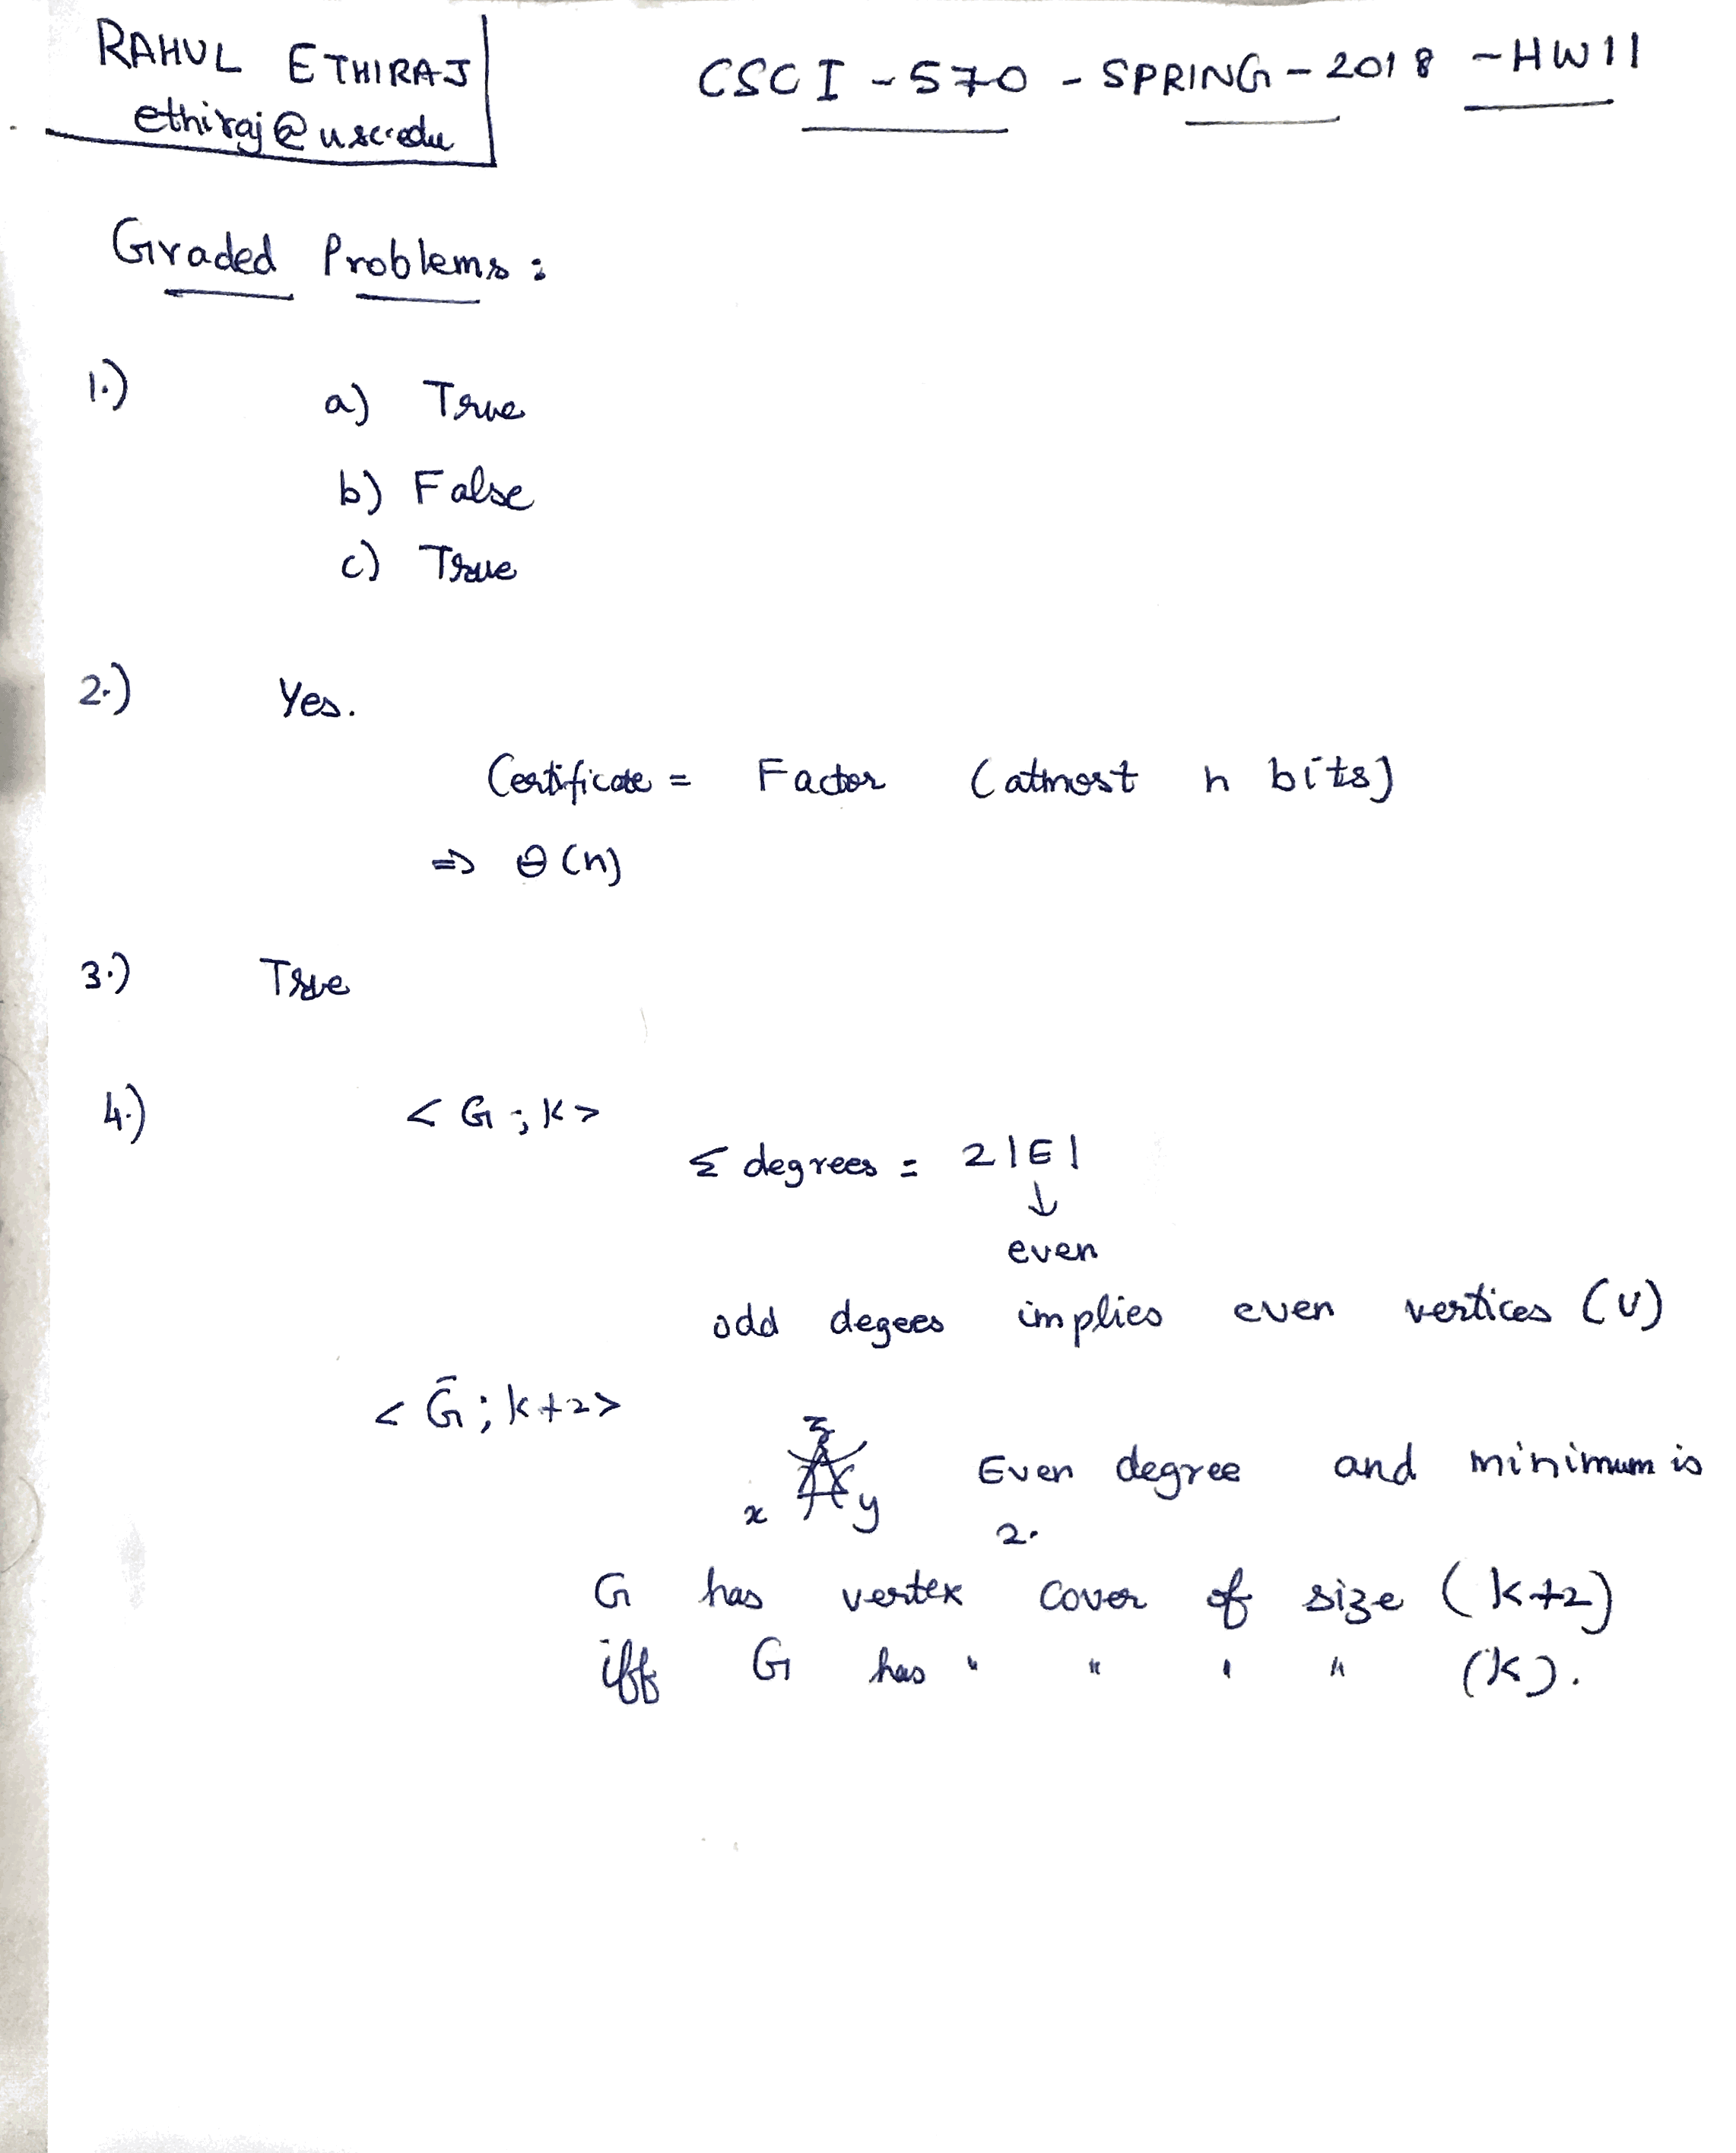 RAHUL ETHIRAJ
ethiraj@usc.edu
CSCI - 570 - SPRING - 2018 - HW11
Graded Problems :
1.) a) True
b) False
c) True
2.) Yes.
Certificate = Factor (atmost n bits)
⇒ θ(n)
3.) True
4.) < G ; K >
Σ degrees = 2|E|
↓
even
odd degees implies even vertices (U)
< G̅ ; K+2 >
z
x y Even degree and minimum is
2.
G has vertex cover of size (K+2)
iff G has " " " " (K).